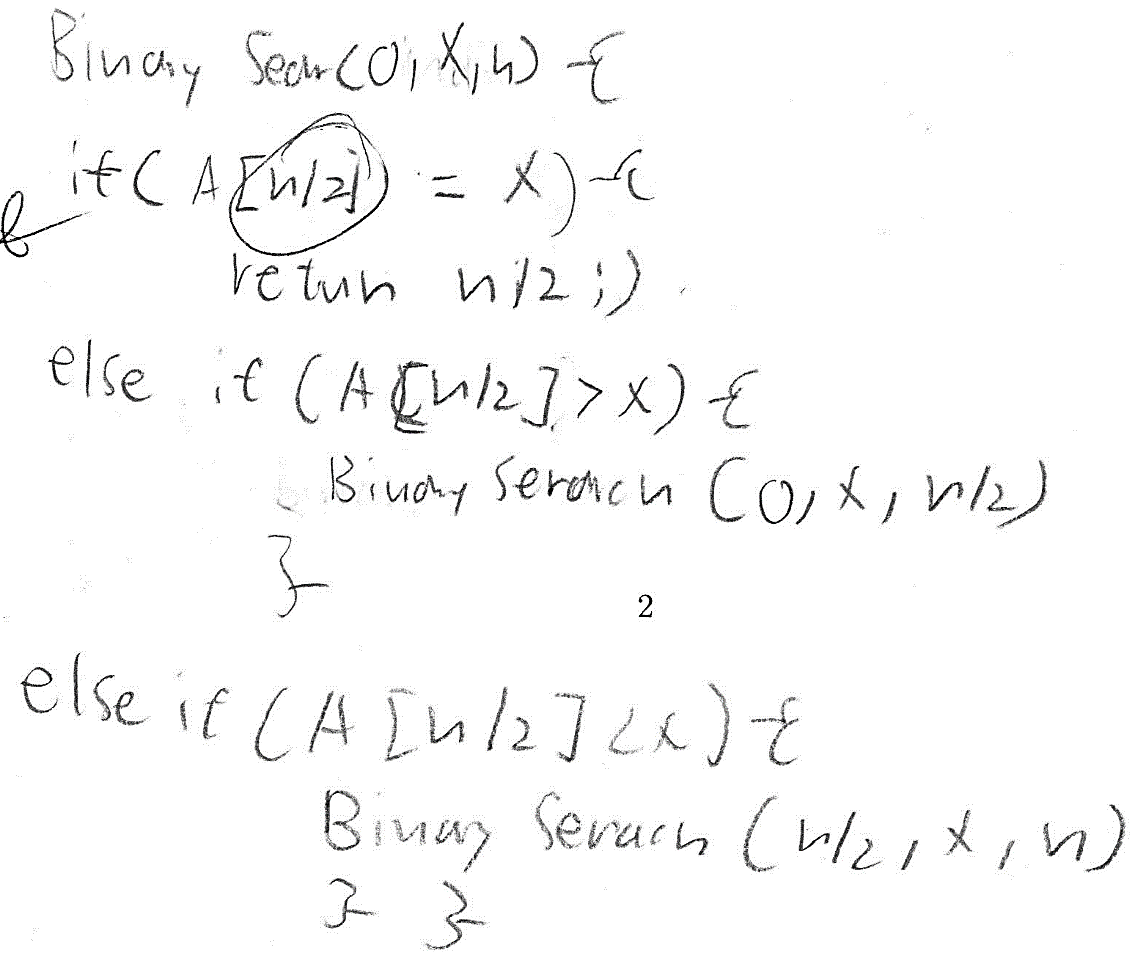 Binary Sear(0, X, n) {
if( A[n/2] = X) {
return n/2 ; }
else if (A[n/2] > x) {
Binary Serach (0, x, n/2)
}
2
else if (A [n/2] < x) {
Binary Serach (n/2, x, n)
} }